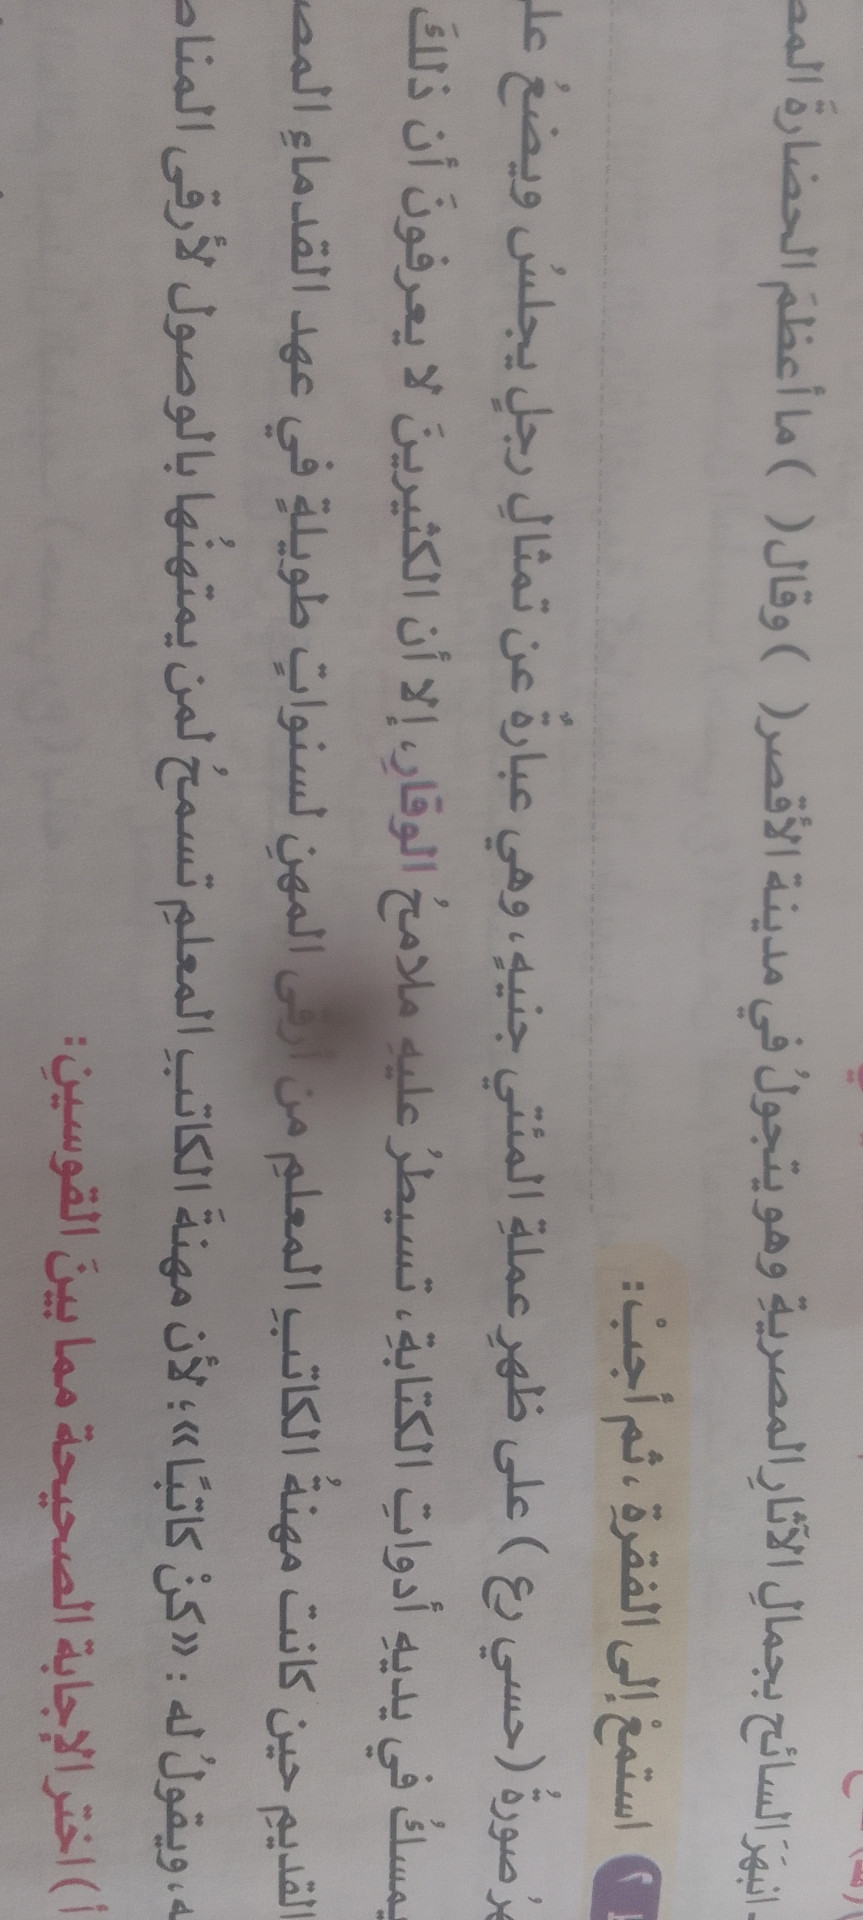 انبهرَ السائح بجمالِ الآثارِ المصريةِ وهو يتجولُ في مدينة الأقصر ( ) وقال ( ) ما أعظمَ الحضارةَ
٢ استمعْ إلى الفقرةِ، ثم أجبْ:
صورةُ (حسي رع) على ظهرِ عملةِ المئتي جنيهٍ، وهي عبارةٌ عن تمثالِ رجلٍ يجلسُ ويضعُ
يمسكُ في يديهِ أدواتِ الكتابةِ، تسيطرُ عليهِ ملامحُ الوقارِ، إلا أن الكثيرينَ لا يعرفونَ أن ذلكَ
القديمِ حين كانت مهنةُ الكاتبِ المعلمِ من أرقى المهنِ لسنواتٍ طويلةٍ في عهد القدماءِ
ويقولُ له: «كنْ كاتبًا»؛ لأن مهنةَ الكاتبِ المعلمِ تسمحُ لمن يمتهنُها بالوصول لأرقى
أ) اختر الإجابة الصحيحة مما بينَ القوسينِ: